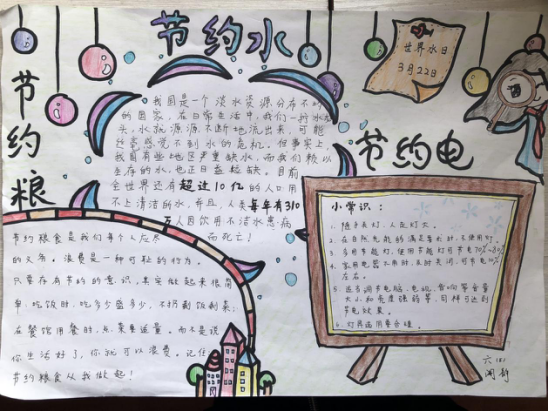 节约水
世界水日
3月22日
节约粮
节约电
我国是个淡水资源分布不均
的国家，在日常生活中，我们一拧水龙
头，水就源源不断地流出来，可能
丝毫感觉不到水的危机。但事实上，
我国有些地区严重缺水，而我们赖以
生存的水，也正日益短缺。目前
全世界还有超过10亿的人口用
不上清洁的水，并且，人类每年有310
万人因饮用不洁水患病
而死亡！
节约粮食是我们每个人应尽
的义务。浪费是一种可耻的行为。
只要存有节约的意识，其实做起来很简
单：吃饭时，吃多少盛多少，不扔剩饭剩菜；
在餐馆用餐时，点菜要适量。而不是说
你生活好了，你就可以浪费。记住
节约粮食从我做起！
小常识：
1. 随手关灯，人走灯灭。
2. 在自然光能满足需求时，不使用灯
3. 多用节能灯，使用节能灯可节电70%~80%
4. 家用电器不用时，及时关闭，可节电10%
左右。
5. 适当调节电脑、电视、音响等音量
大小和亮度强弱等，同样可达到
节电效果。
6. 灯具要
六